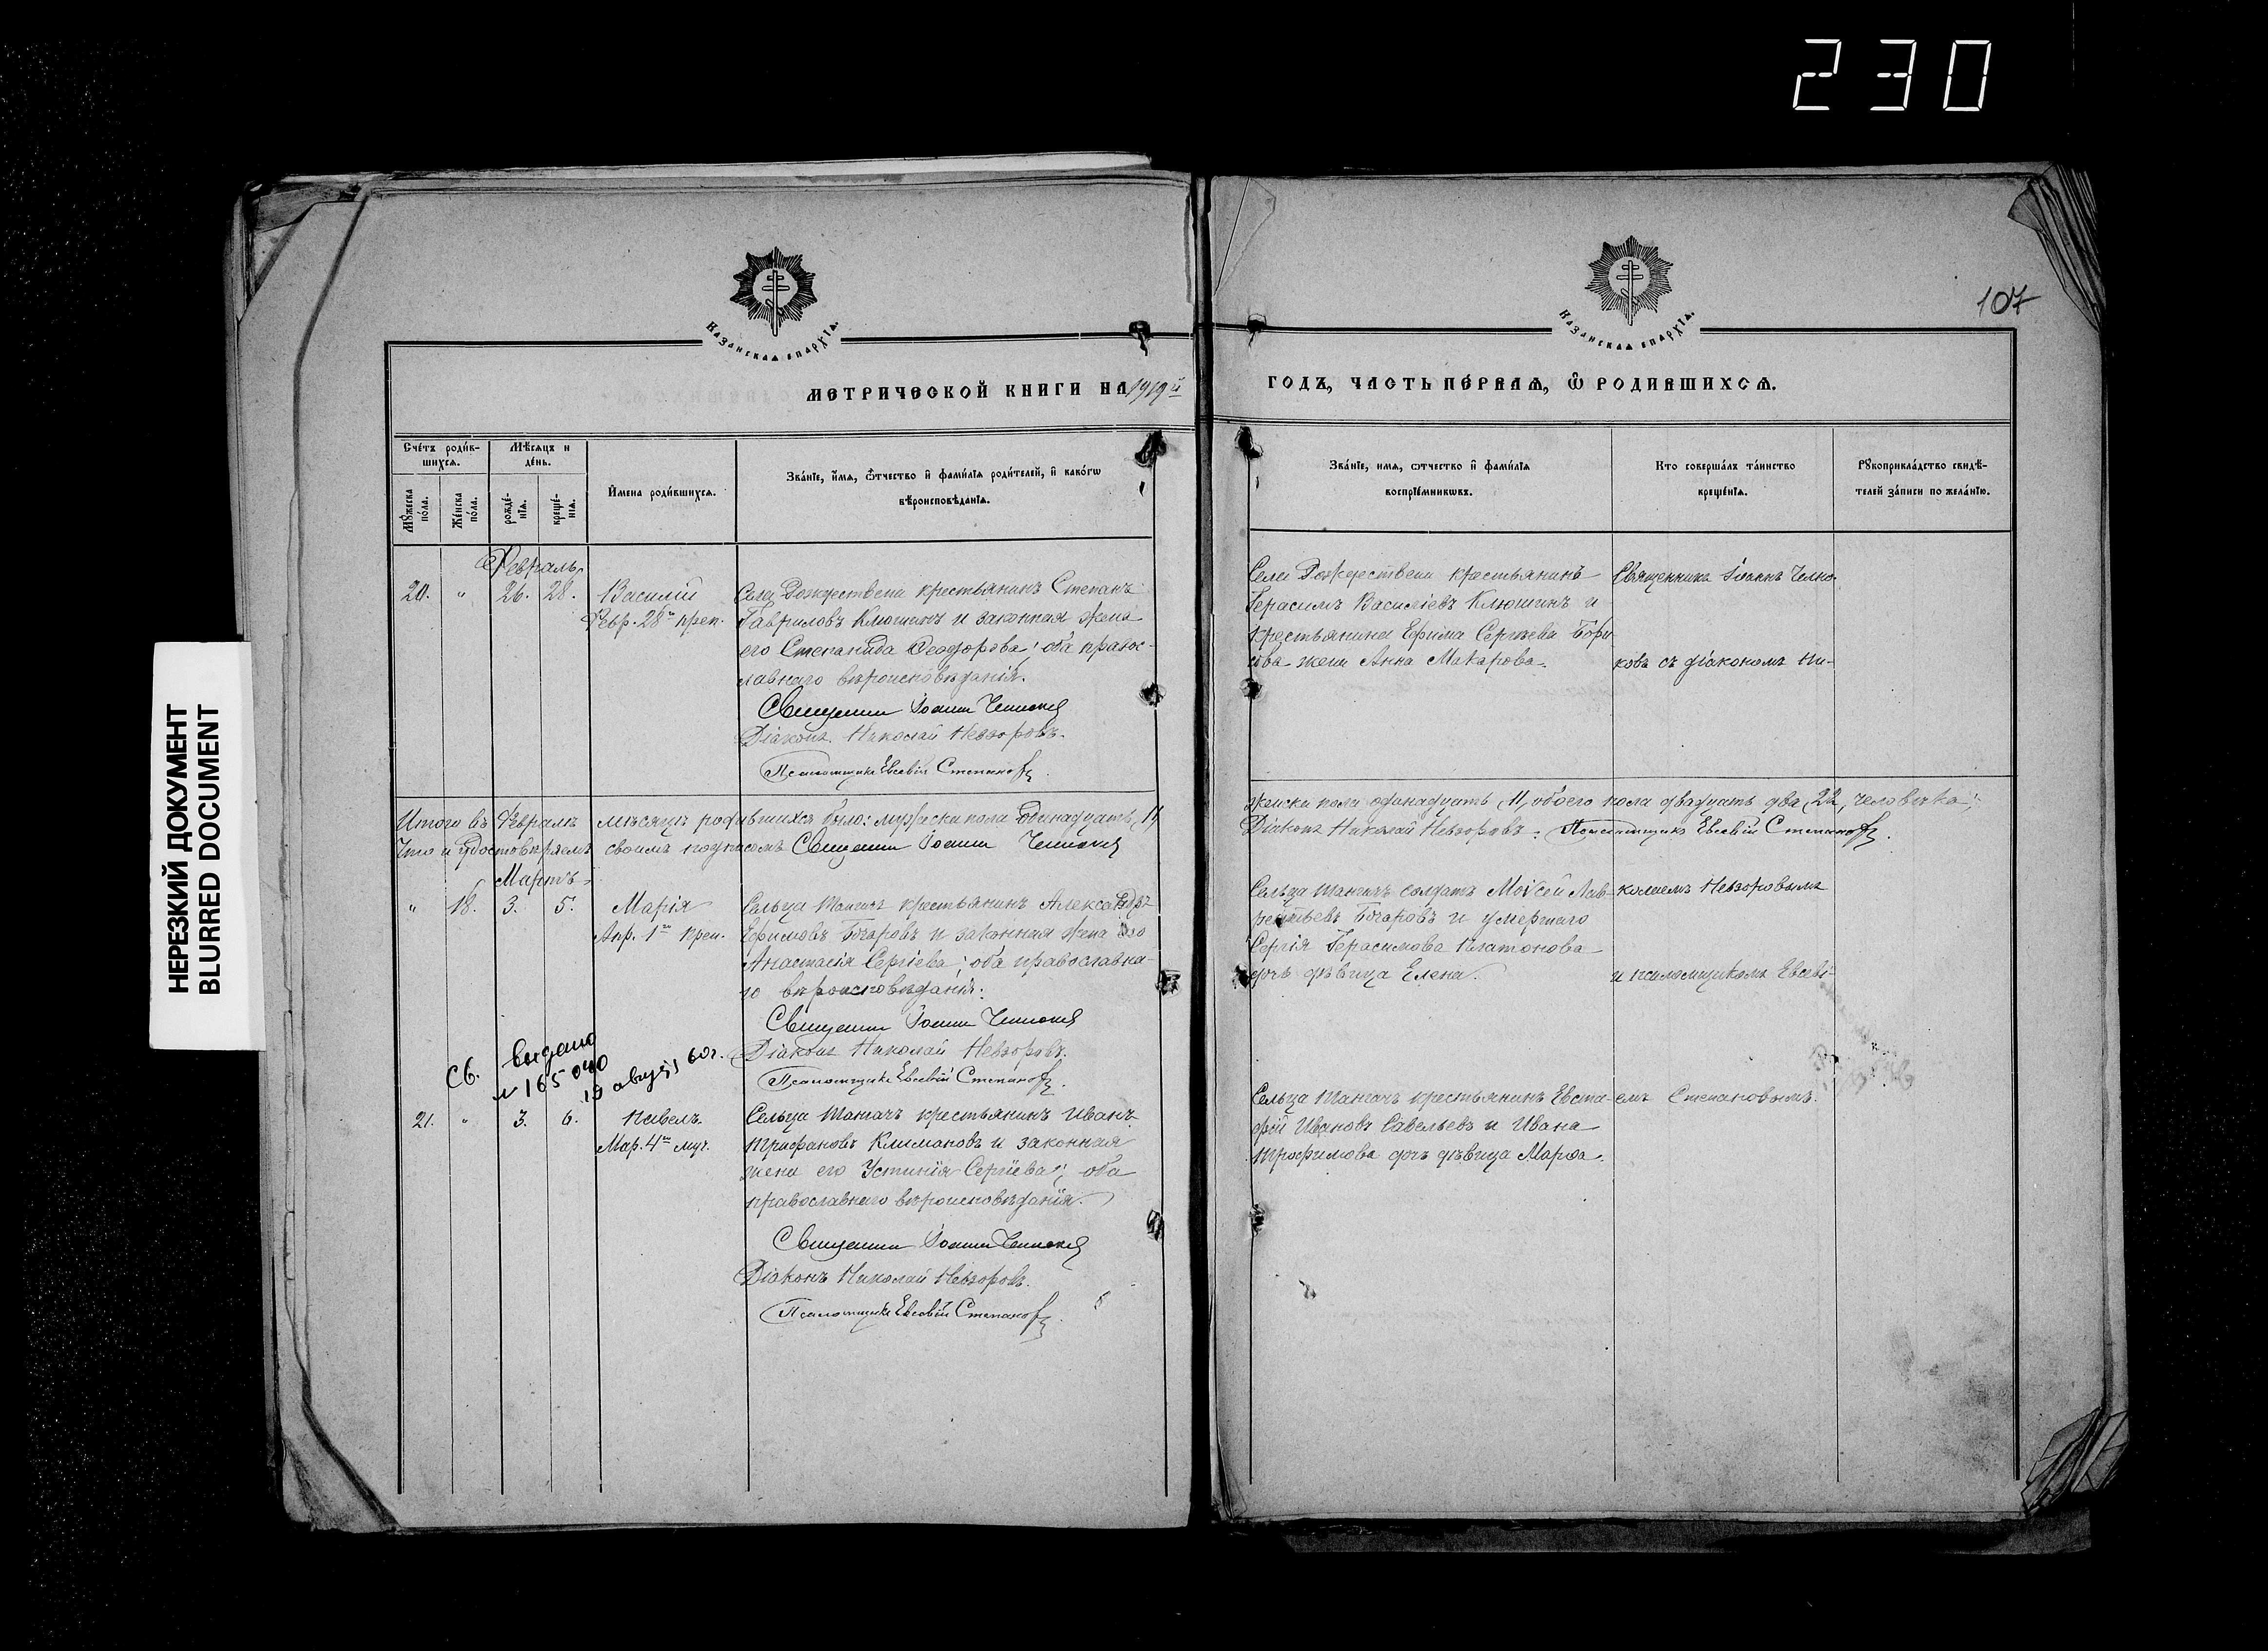 230
НЕРЕЗКИЙ ДОКУМЕНТ
BLURRED DOCUMENT
Казанская епархїѧ.
Казанская епархїѧ.
107
МЕТРИЧЕСКОЙ КНИГИ НА 1919й
ГОДЪ, ЧАСТЬ ПЕРВАѦ, Ѡ РОДИВШИХСѦ.
Счетъ родив-
шихсѧ.
Мѣсѧцъ и
день.
Мужеска
пола.
Женска
пола.
рожде-
нїѧ.
креще-
нїѧ.
Имена родившихсѧ.
Званїе, имѧ, ѿчество и фамилїѧ родителей, и какогѡ
вѣроисповѣданїѧ.
Званїе, имѧ, ѿчество и фамилїѧ
воспрїемникѡвъ.
Кто совершалъ таинство
крещенїѧ.
Рукоприкладство свидѣ-
телей записи по желанїю.
Февраль
20. " 26. 28. Василій
Февр. 28го преп.
Села Рождествена крестьянинъ Степанъ
Гавриловъ Клюшинъ и законная жена
его Степанида Ѳеодорова; оба правос-
лавнаго вѣроисповѣданія.
Священник Іоанн
Діаконъ Николай Невзоровъ.
Псаломщикъ Евсевій Степановъ
Села Рождествена крестьянинъ
Герасимъ Василіевъ Клюшинъ и
крестьянина Ефима Сергѣева
жена Анна Макарова.
Священникъ Іоаннъ
ковъ съ діакономъ Ни-
Итого въ Февралѣ мѣсяцѣ родившихся было: мужеска пола одинадцать, 11
женска пола одинадцать, 11, обоего пола двадцать два, 22, человѣка;
Что и удостовѣряемъ своимъ подписомъ Священник Іоанн
Діаконъ Николай Невзоровъ. Псаломщикъ Евсевій Степановъ.
Мартъ
" 18. 3. 5. Марія
Апр. 1го преп.
Сельца крестьянинъ Александръ
Ефимовъ Бочаровъ и законная жена его
Анастасія Сергіева; оба православна-
го вѣроисповѣданія.
Священник Іоанн
Діаконъ Николай Невзоровъ.
Псаломщикъ Евсевій Степановъ.
Сельца солдатъ Моисей Лав-
рентьевъ Бочаровъ и умершаго
Сергія Герасимова Платонова
дочь дѣвица Елена.
колаемъ Невзоровымъ
и псаломщикомъ Евсеві-
Св. выдано
№ 165040
19 август 60г.
21. " 3. 6. Павелъ
Мар. 4го муч.
Сельца крестьянинъ Иванъ
Трифановъ Климановъ и законная
жена его Устинія Сергіева; оба
православнаго вѣроисповѣданія.
Священник Іоанн
Діаконъ Николай Невзоровъ.
Псаломщикъ Евсевій Степановъ
Сельца крестьянинъ Евста-
фій Ивановъ Савельевъ и Ивана
Трофимова дочь дѣвица Марѳа.
емъ Степановымъ.